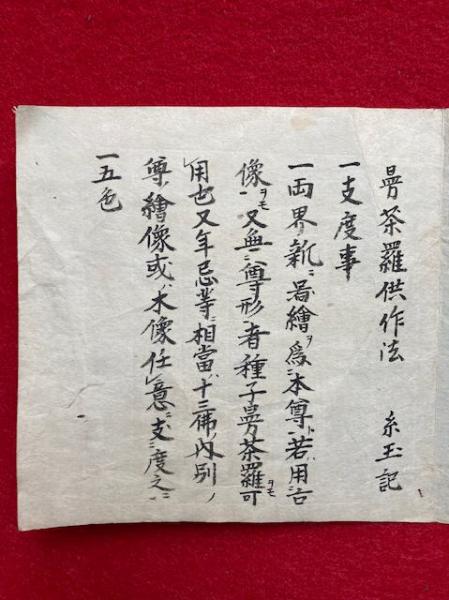 曼荼羅供作法 糸玉記
一支度事
一両界新ニ啚繪ヲ爲ニ本尊ト若ハ用ニ古
像ヲモ一又無ニ尊形一者種子曼荼羅ヲモ可
レ用也又年忌等ニ相當ハ十三佛ノ内別ノ
尊ノ繪像或ハ木像任レ意ニ支ニ度之ニ
一五色